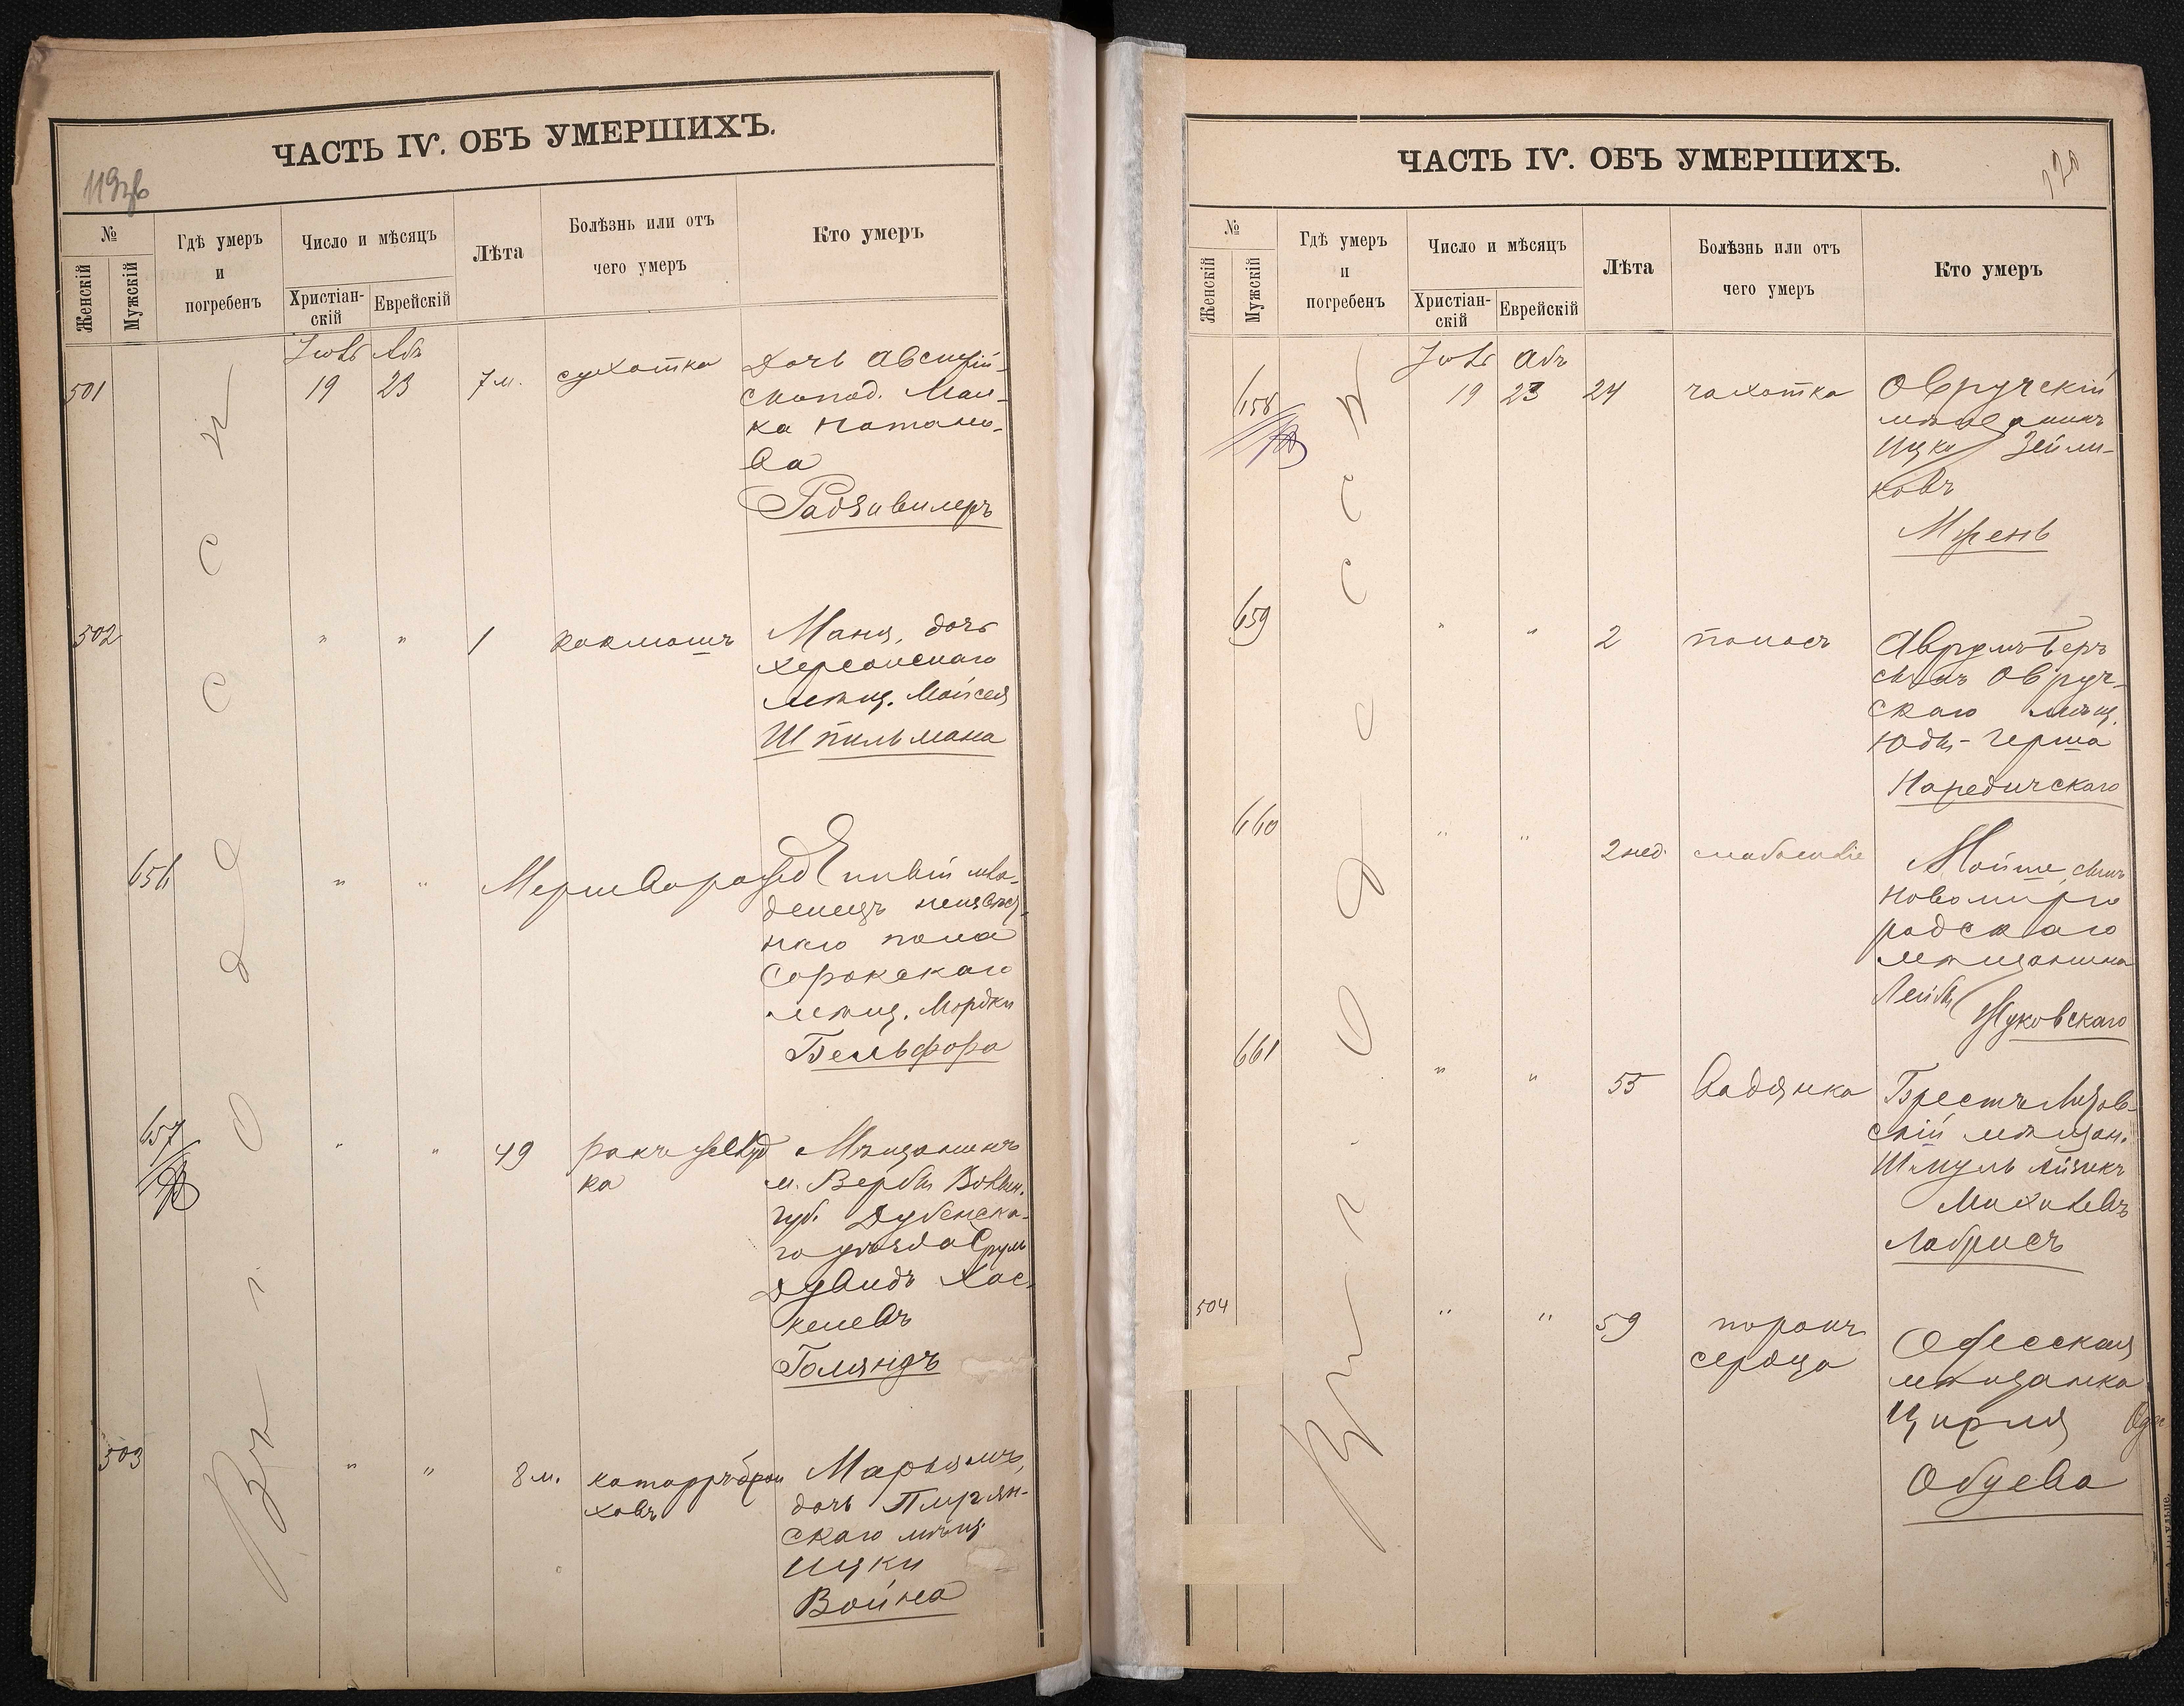 ЧАСТЬ IV. ОБЪ УМЕРШИХЪ.
119
№
Женскій
Мужскій
Гдѣ умеръ
и
погребенъ
Число и мѣсяцъ
Христіан-
скій
Еврейскій
Лѣта
Болѣзнь или отъ
чего умеръ
Кто умеръ
Іюль Абъ
501
19 23 7 м. сухотка
Дочь Австрій-
скопод. Мал-
ка Натано-
ва
Радзивилеръ
502
" " 1 коклюшъ
Маня, дочь
Херсонскаго
мѣщ. Мойсея
Шпильмана
656
" " Мертворожд
мла-
денецъ
пола
Сорокскаго
мѣщ. Мордки
Бельфора
657
" " 49 ракъ желуд
ка
Мѣщанинъ
м. Вербы Волын.
губ. Дубенска-
го уѣзда Сруль
Дувидъ Хас-
келевъ
Голяндъ
503
" " 8 м. катарръ брон
ховъ
Марьямъ,
дочь Пирян-
скаго мѣщ.
Ицки
Война
Въ г. Одессѣ
ЧАСТЬ IV. ОБЪ УМЕРШИХЪ.
120
№
Женскій
Мужскій
Гдѣ умеръ
и
погребенъ
Число и мѣсяцъ
Христіан-
скій
Еврейскій
Лѣта
Болѣзнь или отъ
чего умеръ
Кто умеръ
Іюль Абъ
658
19 23 24 чахотка
Овручскій
мѣщанинъ
Ицко Зейли-
ковъ
659
" " 2 поносъ
Аврумъ Беръ
сынъ Овруч-
скаго мѣщ.
Юды-Герша
Народичскаго
660
" " 2 нед. слабость
Мойше, сынъ
Новомирго
родскаго
мѣщанина
Лейбы
Жуковскаго
661
" " 55 водянка
Брестъ Литов-
скій мѣщан.
Шмуль Айзикъ
Михилевъ
Лабрисъ
504
" " 59 порокъ
сердца
Одесская
мѣщанка
Ципря
Обуева
Въ г. Одессѣ